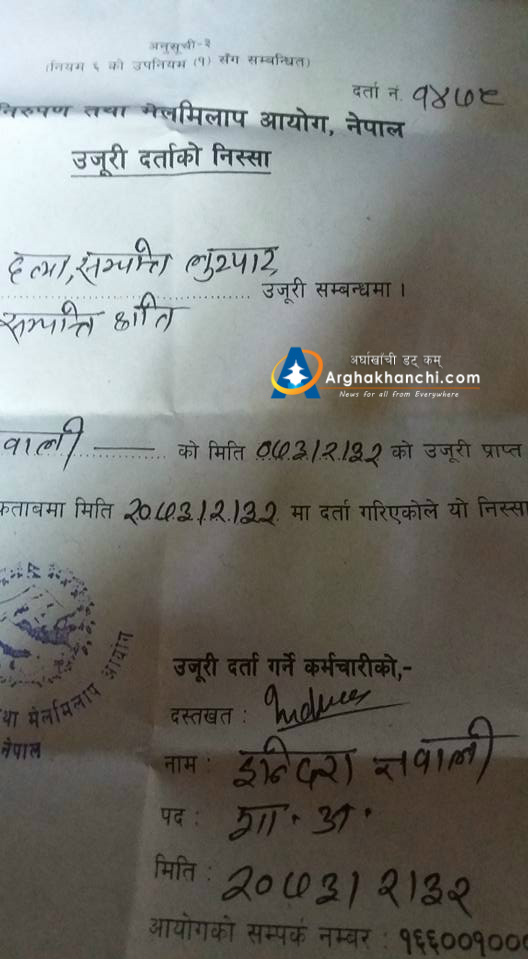 अनुसूची-२
(नियम ६ को उपनियम (१) सँग सम्बन्धित)
दर्ता नं. १४७९
निरुपण तथा मेलमिलाप आयोग, नेपाल
उजूरी दर्ताको निस्सा
हत्या, सम्पत्ति लुटपाट,
उजूरी सम्बन्धमा ।
सम्पत्ति क्षति
अर्घाखाँची डट् कम्
Arghakhanchi.com
News for all from Everywhere
वाली को मिति ०७३/२/३२ को उजूरी प्राप्त
कताबमा मिति २०७३/२/३२ मा दर्ता गरिएकोले यो निस्सा
था मेलमिलाप आयोग
नेपाल
उजूरी दर्ता गर्ने कर्मचारीको,-
दस्तखत :
नाम : इन्दिरा ज्ञवाली
पद : शा. अ.
मिति : २०७३/२/३२
आयोगको सम्पर्क नम्बर : १६६००१०००